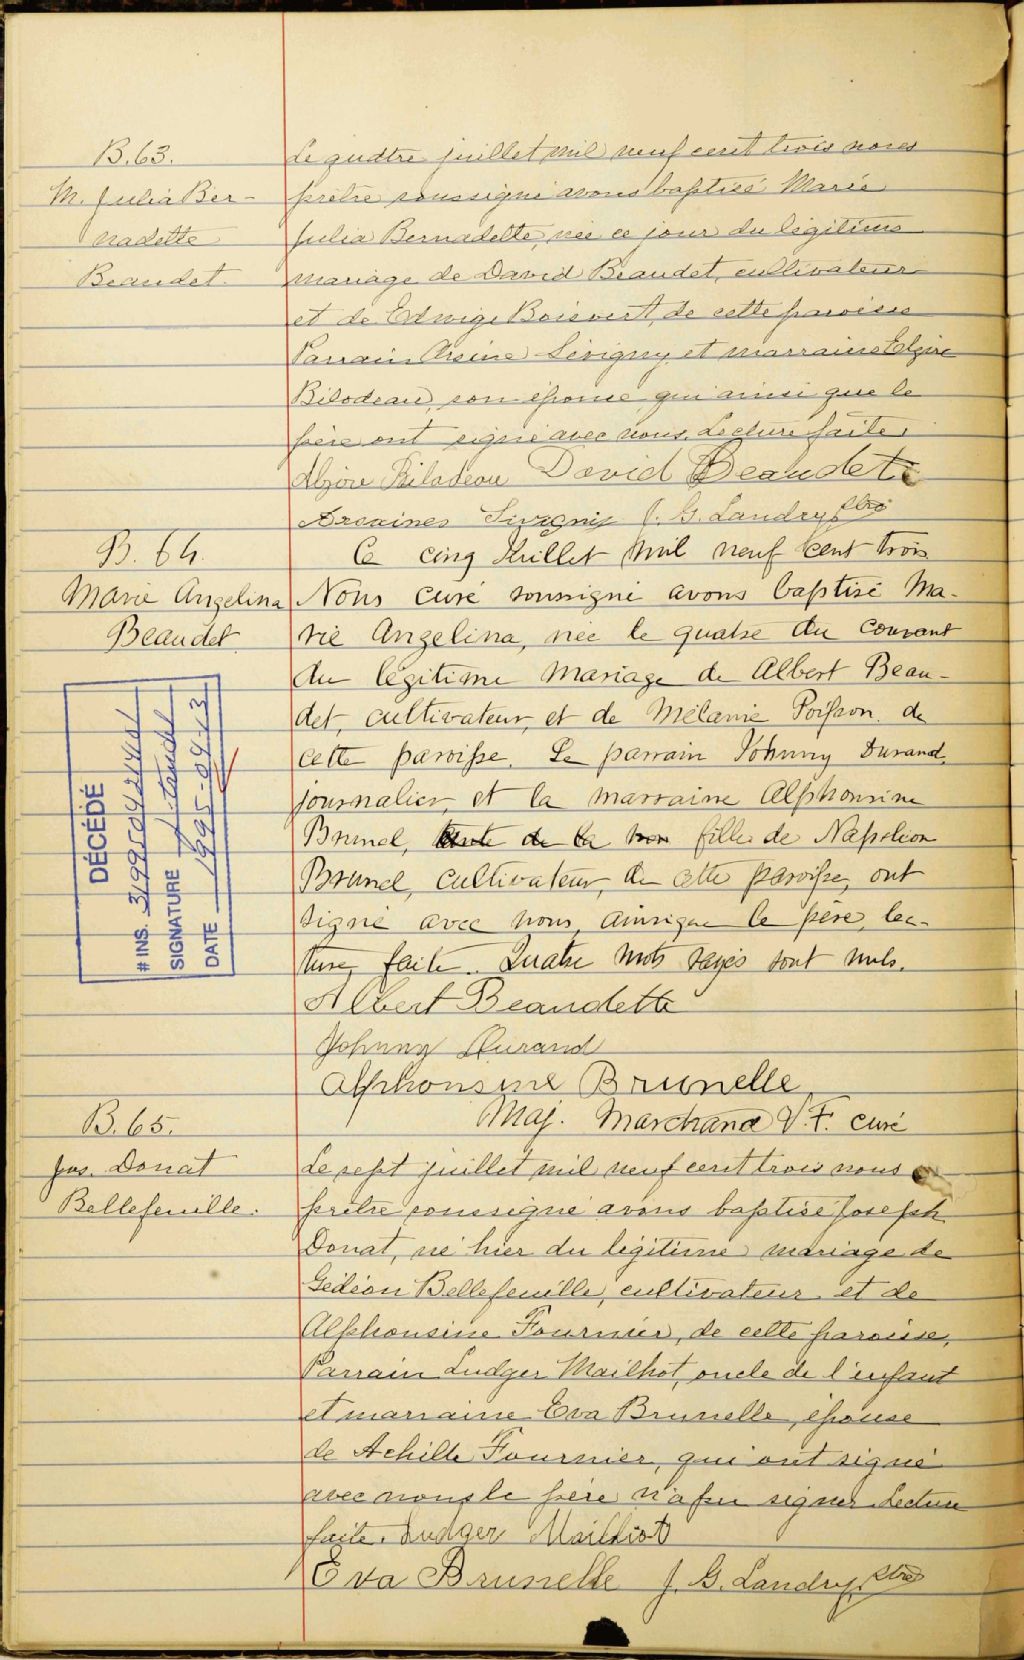 B.63.
M. Julia Ber-
nadette
Beaudet.
Le quatre juillet mil neuf cent trois nous
prêtre soussigné avons baptisé Marie
Julia Bernadette, née ce jour du légitime
mariage de David Beaudet, cultivateur
et de Edwige Boisvert, de cette paroisse
Parrain Arsène Sévigny et marraine Elzire
Bilodeau, son épouse qui ainsi que le
père ont signé avec nous. Lecture faite.
Alzire Bilodeau David Beaudet
Sivigny J. G. Landry, ptre
B. 64.
Marie Angelina
Beaudet
Ce cinq Juillet mil neuf cent trois
Nous curé soussigné avons baptisé Ma-
rie Angelina, née le quatre du courant
du légitime mariage de Albert Beau-
det, cultivateur, et de Mélanie Poisson de
cette paroisse. Le parrain Johnny Durand,
journalier, et la marraine Alphonsine
Brunel, fille de Napoléon
Brunel, cultivateur, de cette paroisse, ont
signé avec nous, ainsi que le père, lec-
ture faite. Quatre mots rayés sont nuls.
Albert Beaudette
Johnny Durand
Alphonsine Brunelle
Maj. Marchand V.F. curé
DÉCÉDÉ
# INS.
SIGNATURE
DATE 1995-04-13
B.65.
Jos. Donat
Bellefeuille.
Le sept juillet mil neuf cent trois nous
prêtre soussigné avons baptisé Joseph
Donat, né hier du légitime mariage de
Gédéon Bellefeuille, cultivateur et de
Alphonsine Fournier, de cette paroisse.
Parrain Ludger Mailhot, oncle de l'enfant
et marraine Eva Brunelle, épouse
de Achille Fournier, qui ont signé
avec nous le père n'a pu signer. Lecture
faite. Ludger Mailhiot
Eva Brunelle J. G. Landry, ptre